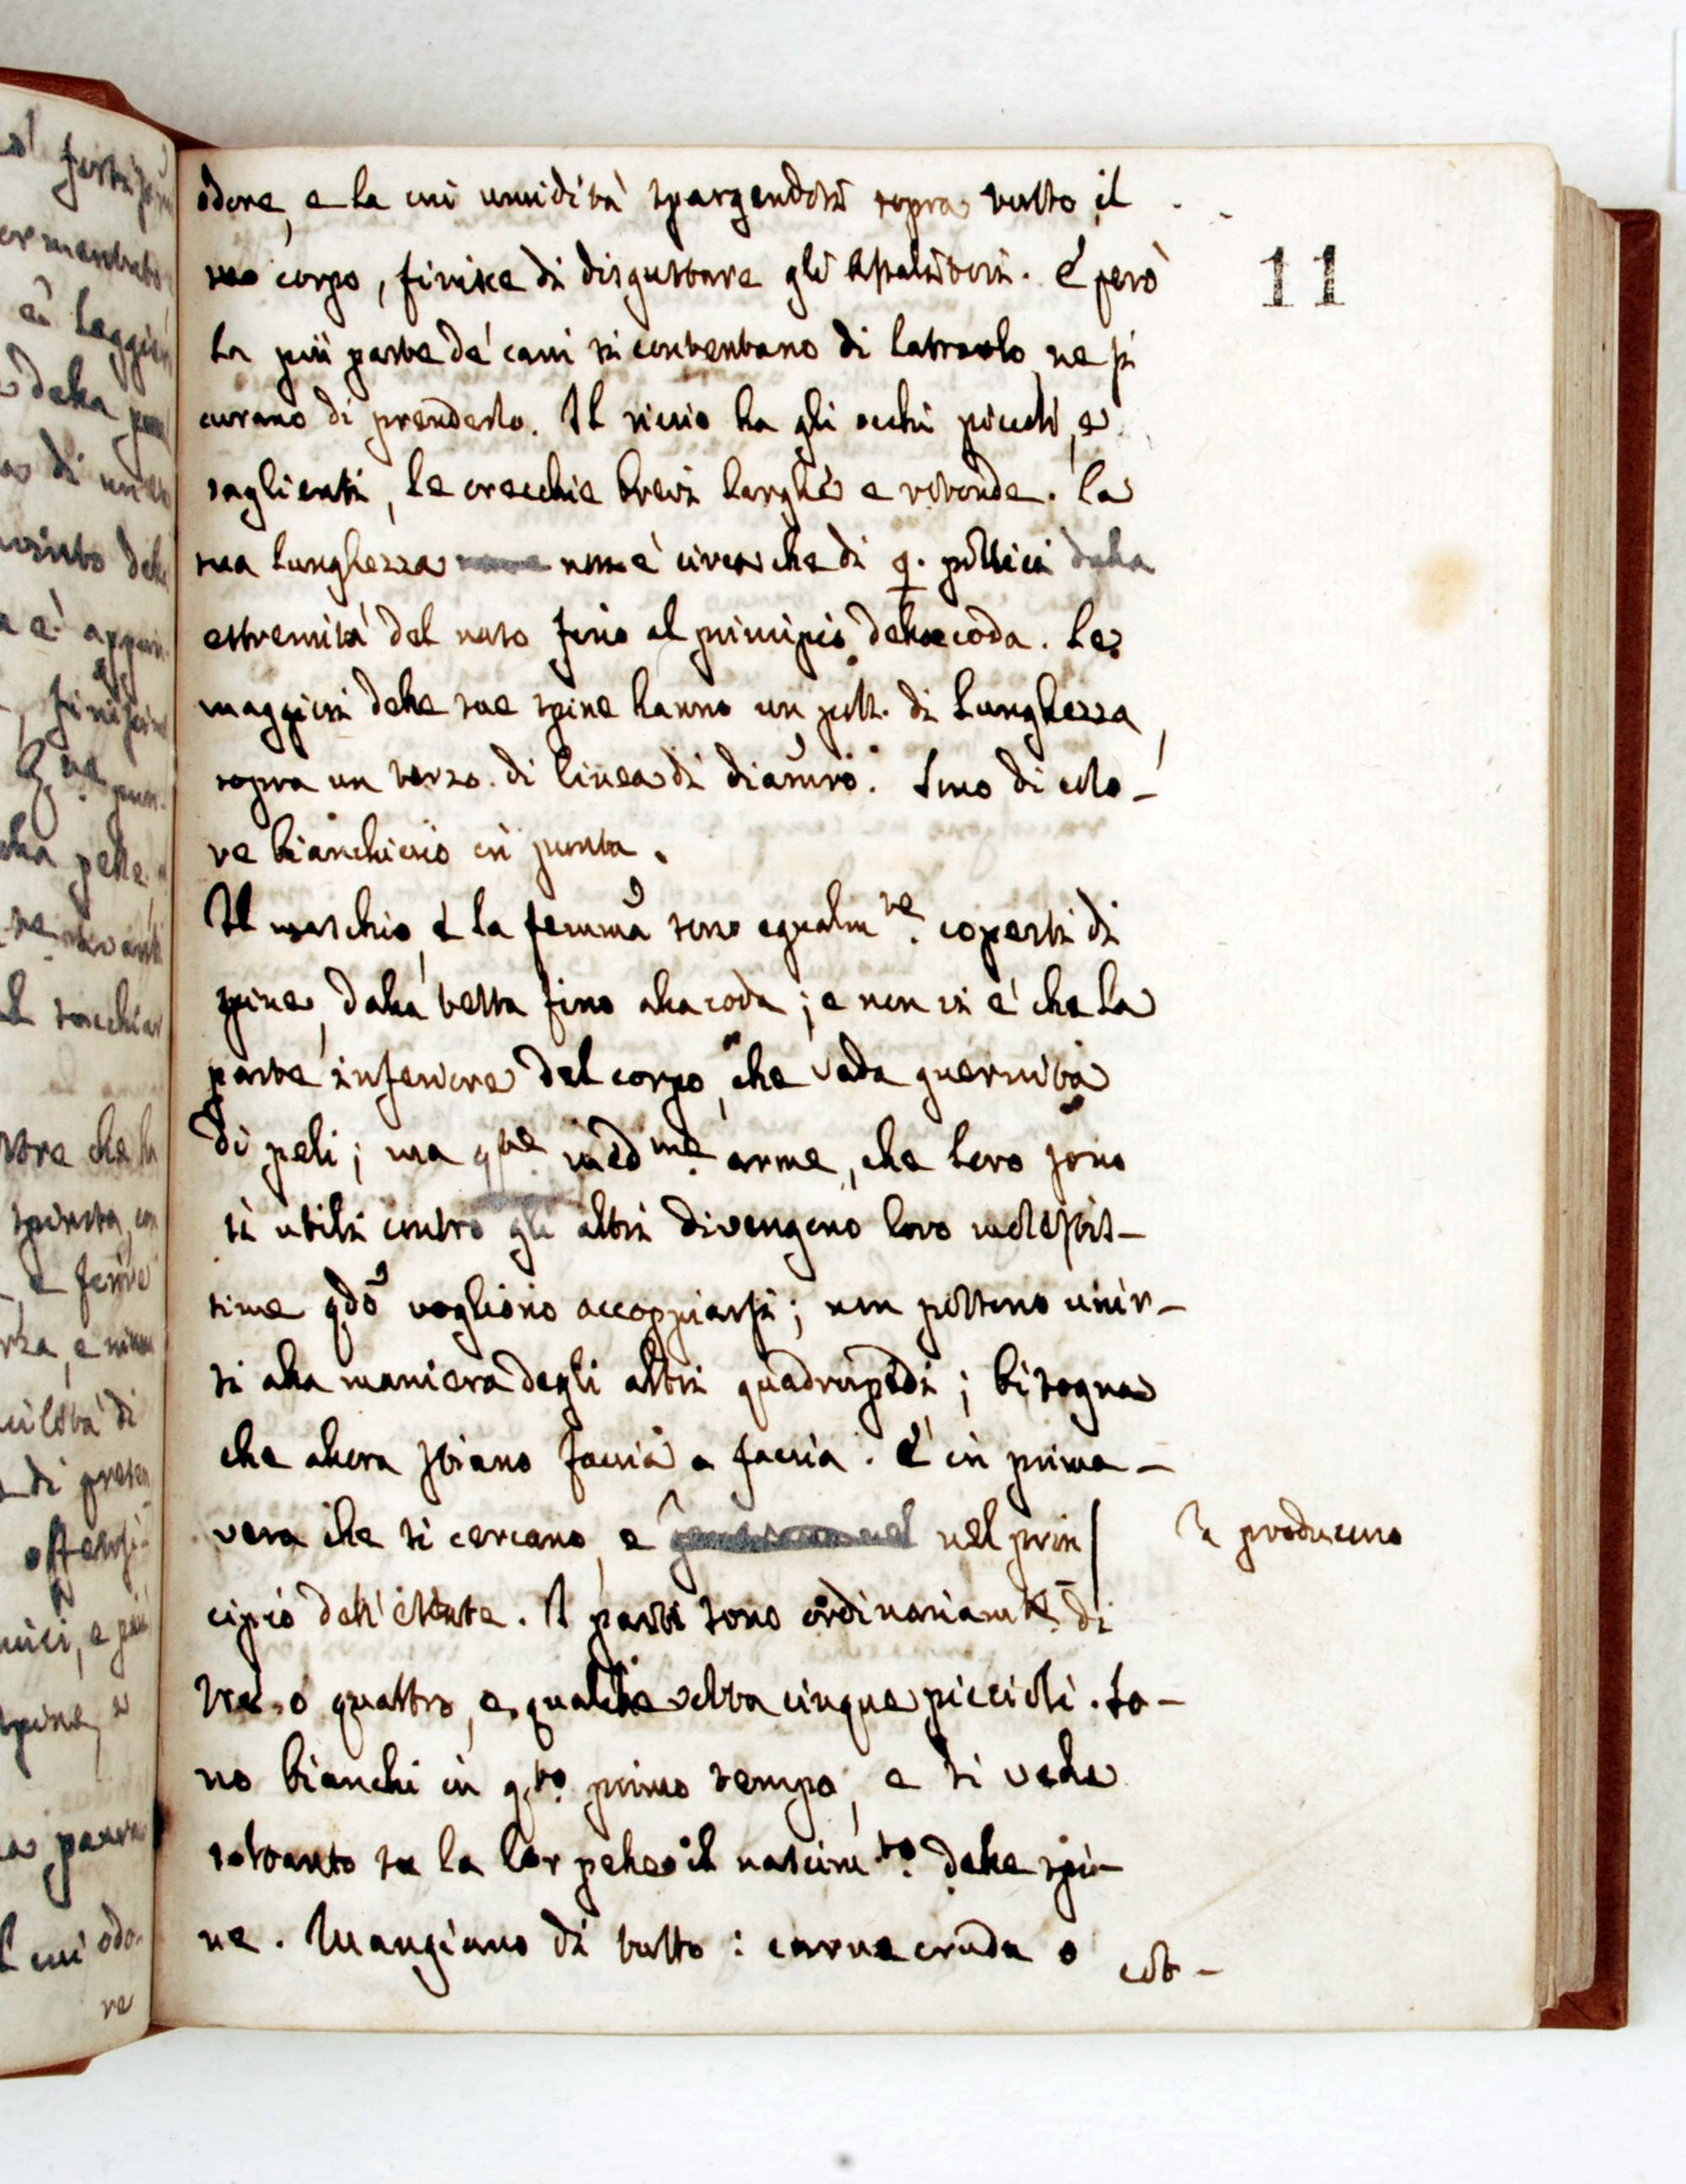 11
odore, e la cui umidità spargendosi sopra tutto il
suo corpo, finisce di disgustare gli assalitori. È però
la più parte de' cani si contentano di latrarlo, ne si
curano di prenderlo. Il riccio ha gli occhi piccoli, e
saglienti, le orecchie brevi larghe e ritonde. La
sua lunghezza non è circa che di 9. pollici dalla
estremità del naso fino al principio della coda. Le
maggiori delle sue spine hanno un poll. di lunghezza,
sopra un terzo di linea di diamro. Sono di colo-
re bianchiccio in punta.
Il maschio, e la femma sono egualmte. coperti di
spine, dalla testa fino alla coda; e non vi è che la
parte inferiore del corpo, che vada guernita
di peli; ma qste. medme. arme, che loro sono
sì utili contro gli altri divengono loro molestis-
sime qdo vogliono accoppiarsi; non possono unir-
si alla maniera degli altri quadrupedi; bisogna
che allora stiano faccia a faccia. È in prima-
vera che si cercano, e nel prin
si producono
cipio dell'estate. I parti sono ordinariamte. di
tre, o quattro, e qualche volta cinque piccioli. So-
no bianchi in qsto. primo tempo, e si vede
soltanto su la lor pelle il nascimto. delle spi-
ne. Mangiano di tutto: carne cruda o
cot-